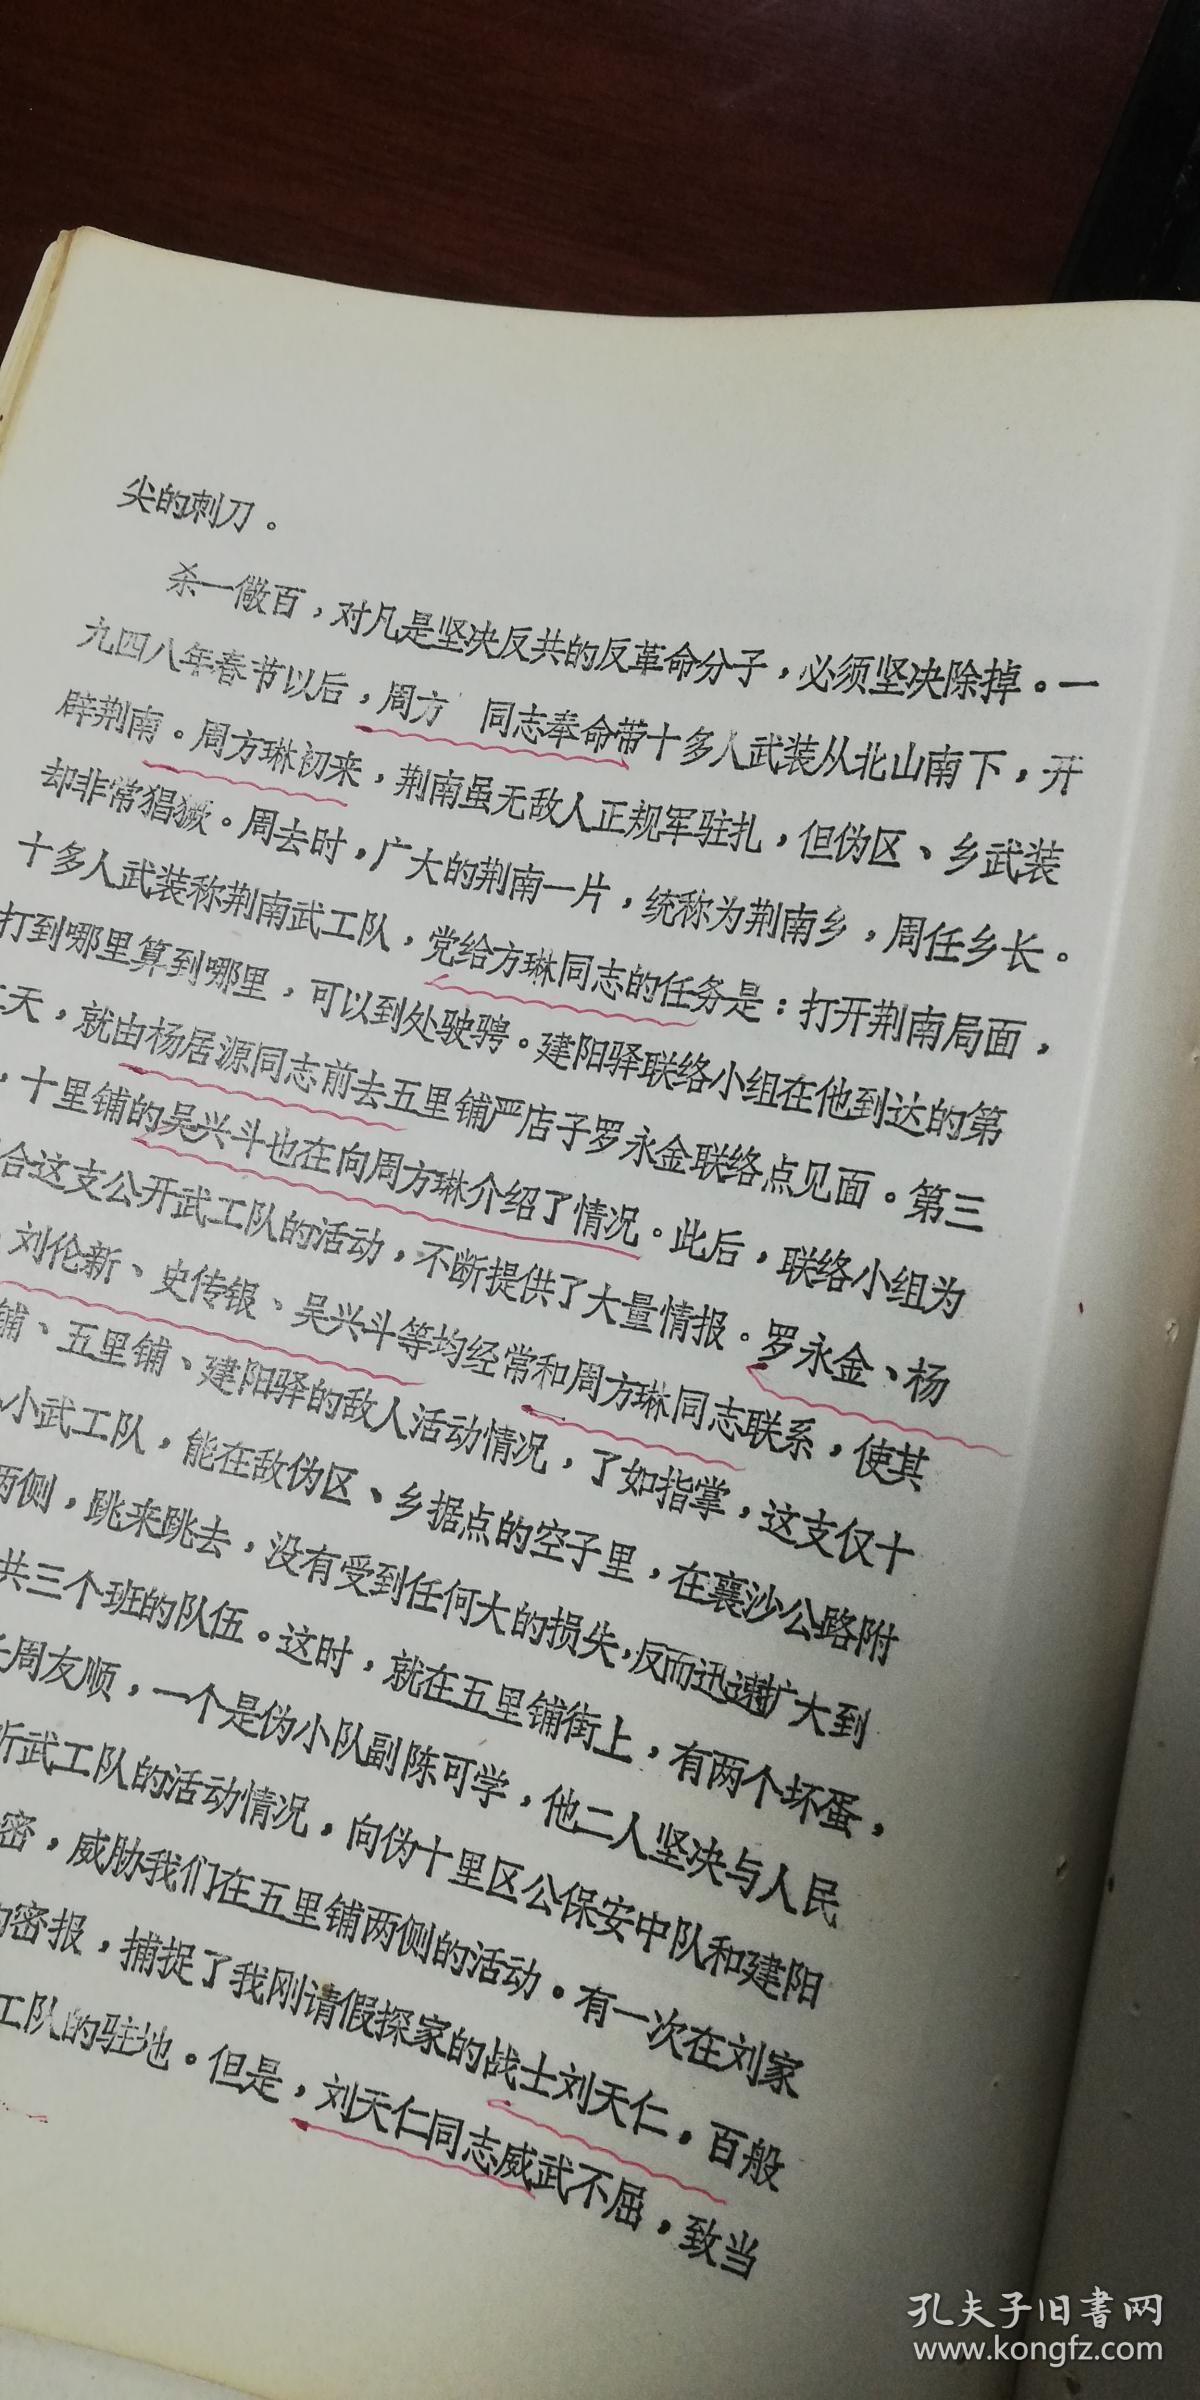 尖的刺刀。
杀一儆百，对凡是坚决反共的反革命分子，必须坚决除掉。一
九四八年春节以后，周方 同志奉命带十多人武装从北山南下，开
辟荆南。周方琳初来，荆南虽无敌人正规军驻扎，但伪区、乡武装
却非常猖獗。周去时，广大的荆南一片，统称为荆南乡，周任乡长。
十多人武装称荆南武工队，党给方琳同志的任务是：打开荆南局面，
打到哪里算到哪里，可以到处驶骋。建阳驿联络小组在他到达的第
天，就由杨居源同志前去五里铺严店子罗永金联络点见面。第三
，十里铺的吴兴斗也在向周方琳介绍了情况。此后，联络小组为
合这支公开武工队的活动，不断提供了大量情报。罗永金、杨
刘伦新、史传银、吴兴斗等均经常和周方琳同志联系，使其
铺、五里铺、建阳驿的敌人活动情况，了如指掌，这支仅十
小武工队，能在敌伪区、乡据点的空子里，在襄沙公路附
两侧，跳来跳去，没有受到任何大的损失，反而迅速扩大到
共三个班的队伍。这时，就在五里铺街上，有两个坏蛋，
周友顺，一个是伪小队副陈可学，他二人坚决与人民
听武工队的活动情况，向伪十里区公保安中队和建阳
密，威胁我们在五里铺两侧的活动。有一次在刘家
密报，捕捉了我刚请假探家的战士刘天仁，百般
工队的驻地。但是，刘天仁同志威武不屈，致当
孔夫子旧书网
www.kongfz.com